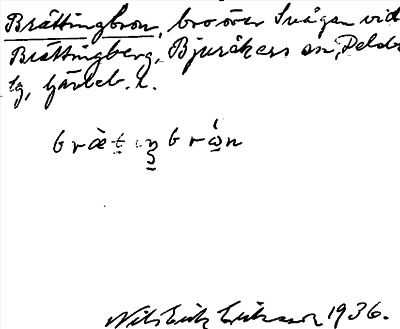 Brättingbron, bro över Svågan vid
Brättingberg, Bjuråkers sn, Delsbo
tg, Gävleb. l.
bràt̠iŋ̠brώ̠n
Nils Erik Eriksson 1936.